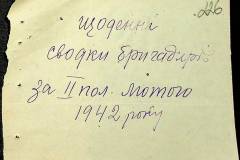 226
Щоденні
сводки бригадирів
за II пол. лютого
1942 року